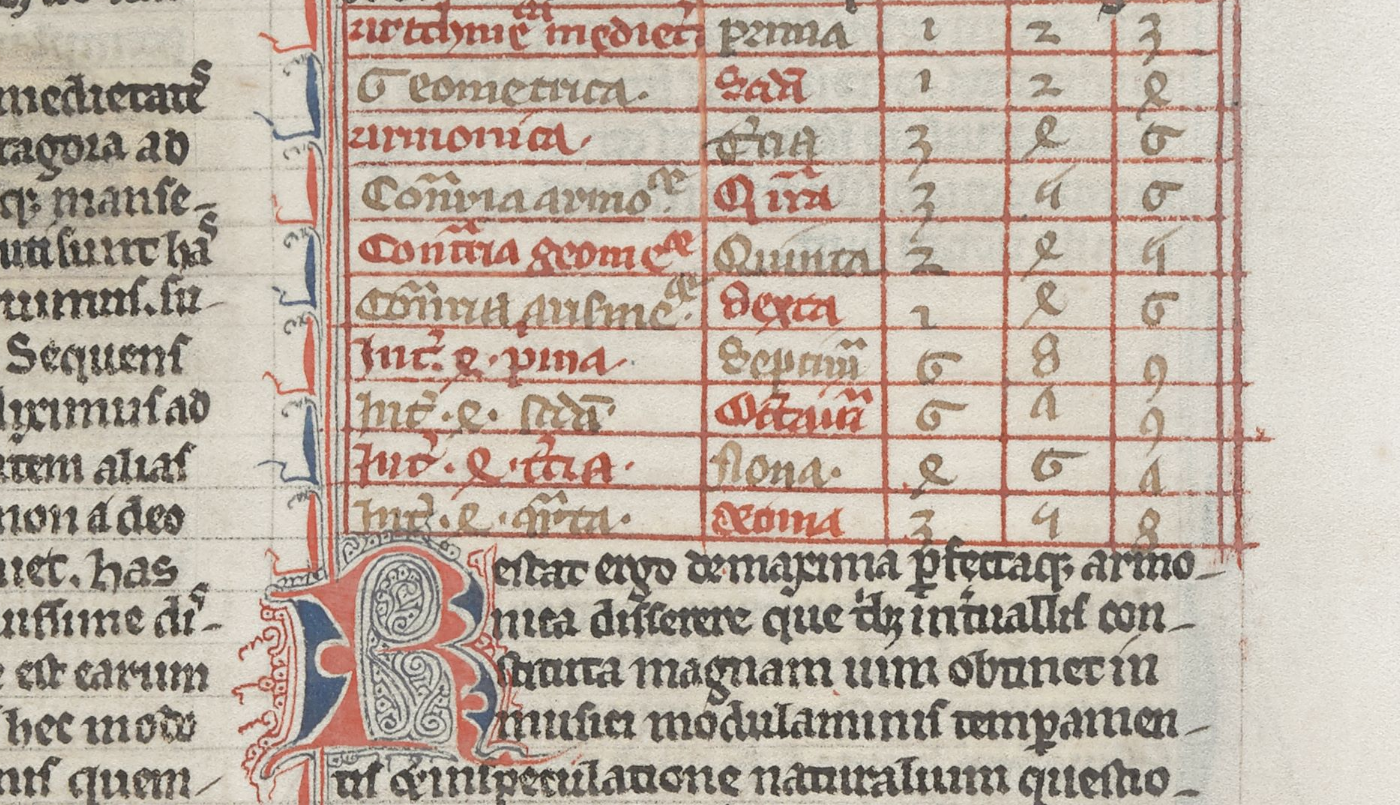 medietates
tagora ad
q; manse-
uti sunt has
rimus. su-
Sequens
diximus ad
tem alias
non adeo
uet. has
di-
est earum
hec modo
quem
Arithme medietas prima 1 2 3
Geometrica. Scda 1 2 4
Armonica. Tcia 3 4 6
Contria armoce. Qrta 3 5 6
Contria geomece Quinta 2 4 5
Contria arismece. Sexta 1 4 6
Int. 4. pma Septima 6 8 9
Int. 4. scda Octaua 6 7 9
Int. 4. tcia. Nona. 4 6 7
Int. 4. qrta. decima 3 5 8
Restat ergo de maxima pfectaq; armo-
nica disserere que tb; interuallis con-
stituta magnam uim obtinet in
musici modulaminis tempamen-
tis & in speculatione naturalium questio-